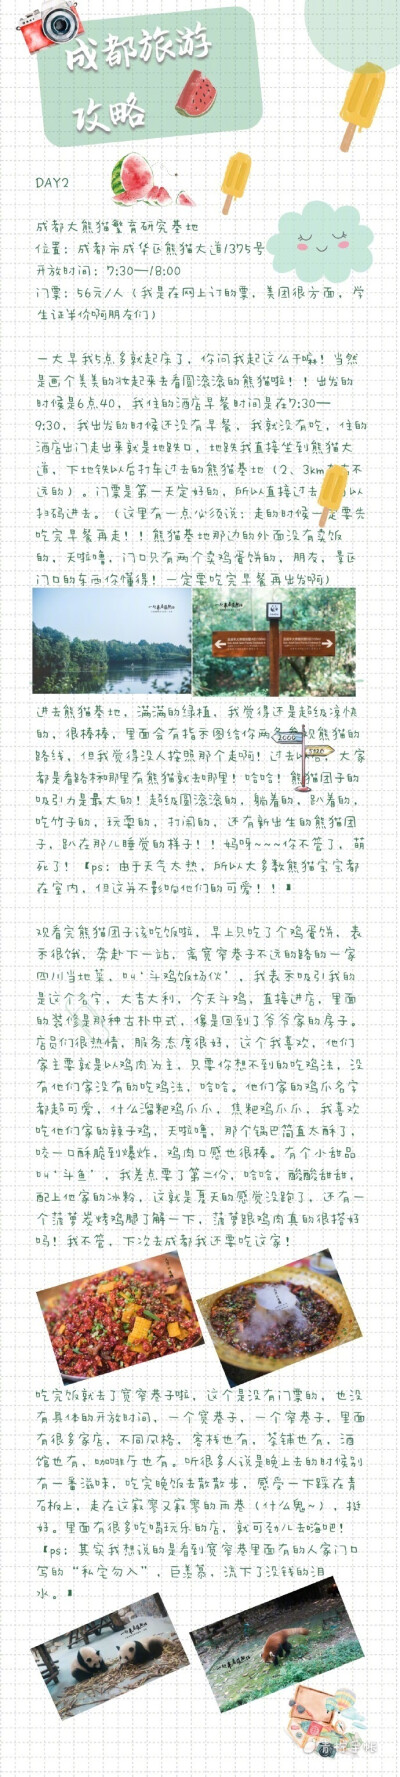 成都旅游
攻略
DAY2
成都大熊猫繁育研究基地
位置：成都市成华区熊猫大道1375号
开放时间：7:30—18:00
门票：56元/人（我是在网上订的票，美团很方面，学
生证半价啊朋友们）
一大早我5点多就起床了，你问我起这么干嘛！当然
是画个美美的妆起来去看圆滚滚的熊猫啦！！出发的
时候是6点40，我住的酒店早餐时间是在7:30—
9:30，我出发的时候还没有早餐，我就没有吃，住的
酒店出门走出来就是地跌口，地跌我直接坐到熊猫大
道，下地铁以后打车过去的熊猫基地（2、3km
远的）。门票是第一天定好的，所以直接过去
扫码进去。（这里有一点必须说：走的时候一定要先
吃完早餐再走！！熊猫基地那边的外面没有卖饭
的，天啦噜，门口只有两个卖鸡蛋饼的，朋友，景区
门口的东西你懂得！一定要吃完早餐再出发啊）
进去熊猫基地，满满的绿植，我觉得还是超级凉快
的，很棒棒，里面会有指示图给你两条参观熊猫的
路线，但我觉得没人按照那个走啊！过去以后，大家
都是看路标哪里有熊猫就去哪里！哈哈！熊猫团子的
吸引力是最大的！超级圆滚滚的，躺着的，趴着的，
吃竹子的，玩耍的，打闹的，还有新出生的熊猫团
子，趴在那儿睡觉的样子！！妈呀~~~你不管了，萌
死了！【ps：由于天气太热，所以大多数熊猫宝宝都
在室内，但这并不影响他们的可爱！！】
2000
5120
观看完熊猫团子该吃饭啦，早上只吃了个鸡蛋饼，表
示很饿，奔赴下一站，离宽窄巷子不远的路的一家
四川当地菜，叫‘斗鸡饭场伙’，我表示吸引我的
是这个名字，大吉大利，今天斗鸡，直接进店，里面
的装修是那种古朴中式，像是回到了爷爷家的房子。
店员们很热情，服务态度很好，这个我喜欢，他们
家主要就是以鸡肉为主，只要你想不到的吃鸡法，没
有他们家没有的吃鸡法，哈哈。他们家的鸡爪名字
都超可爱，什么溜粑鸡爪爪，焦粑鸡爪爪，我喜欢
吃他们家的辣子鸡，天啦噜，那个锅巴简直太酥了，
咬一口酥脆到爆炸，鸡肉口感也很棒。有个小甜品
叫‘斗鱼’，我差点要了第二份，哈哈，酸酸甜甜，
配上他家的冰粉，这就是夏天的感觉没跑了，还有一
个菠萝炭烤鸡腿了解一下，菠萝跟鸡肉真的很搭好
吗！我不管，下次去成都我还要吃这家！
吃完饭就去了宽窄巷子啦，这个是没有门票的，也没
有具体的开放时间，一个宽巷子，一个窄巷子，里面
有很多家店，不同风格，客栈也有，茶铺也有，酒
馆也有，咖啡厅也有。听很多人说是晚上去的时候别
有一番滋味，吃完晚饭去散散步，感受一下踩在青
石板上，走在这寂寥又寂寥的雨巷（什么鬼~），挺
好。里面有很多吃喝玩乐的店，就可劲儿去嗨吧！
【ps：其实我想说的是看到宽窄巷里面有的人家门口
写的“私宅勿入”，巨羡慕，流下了没钱的泪
水。】